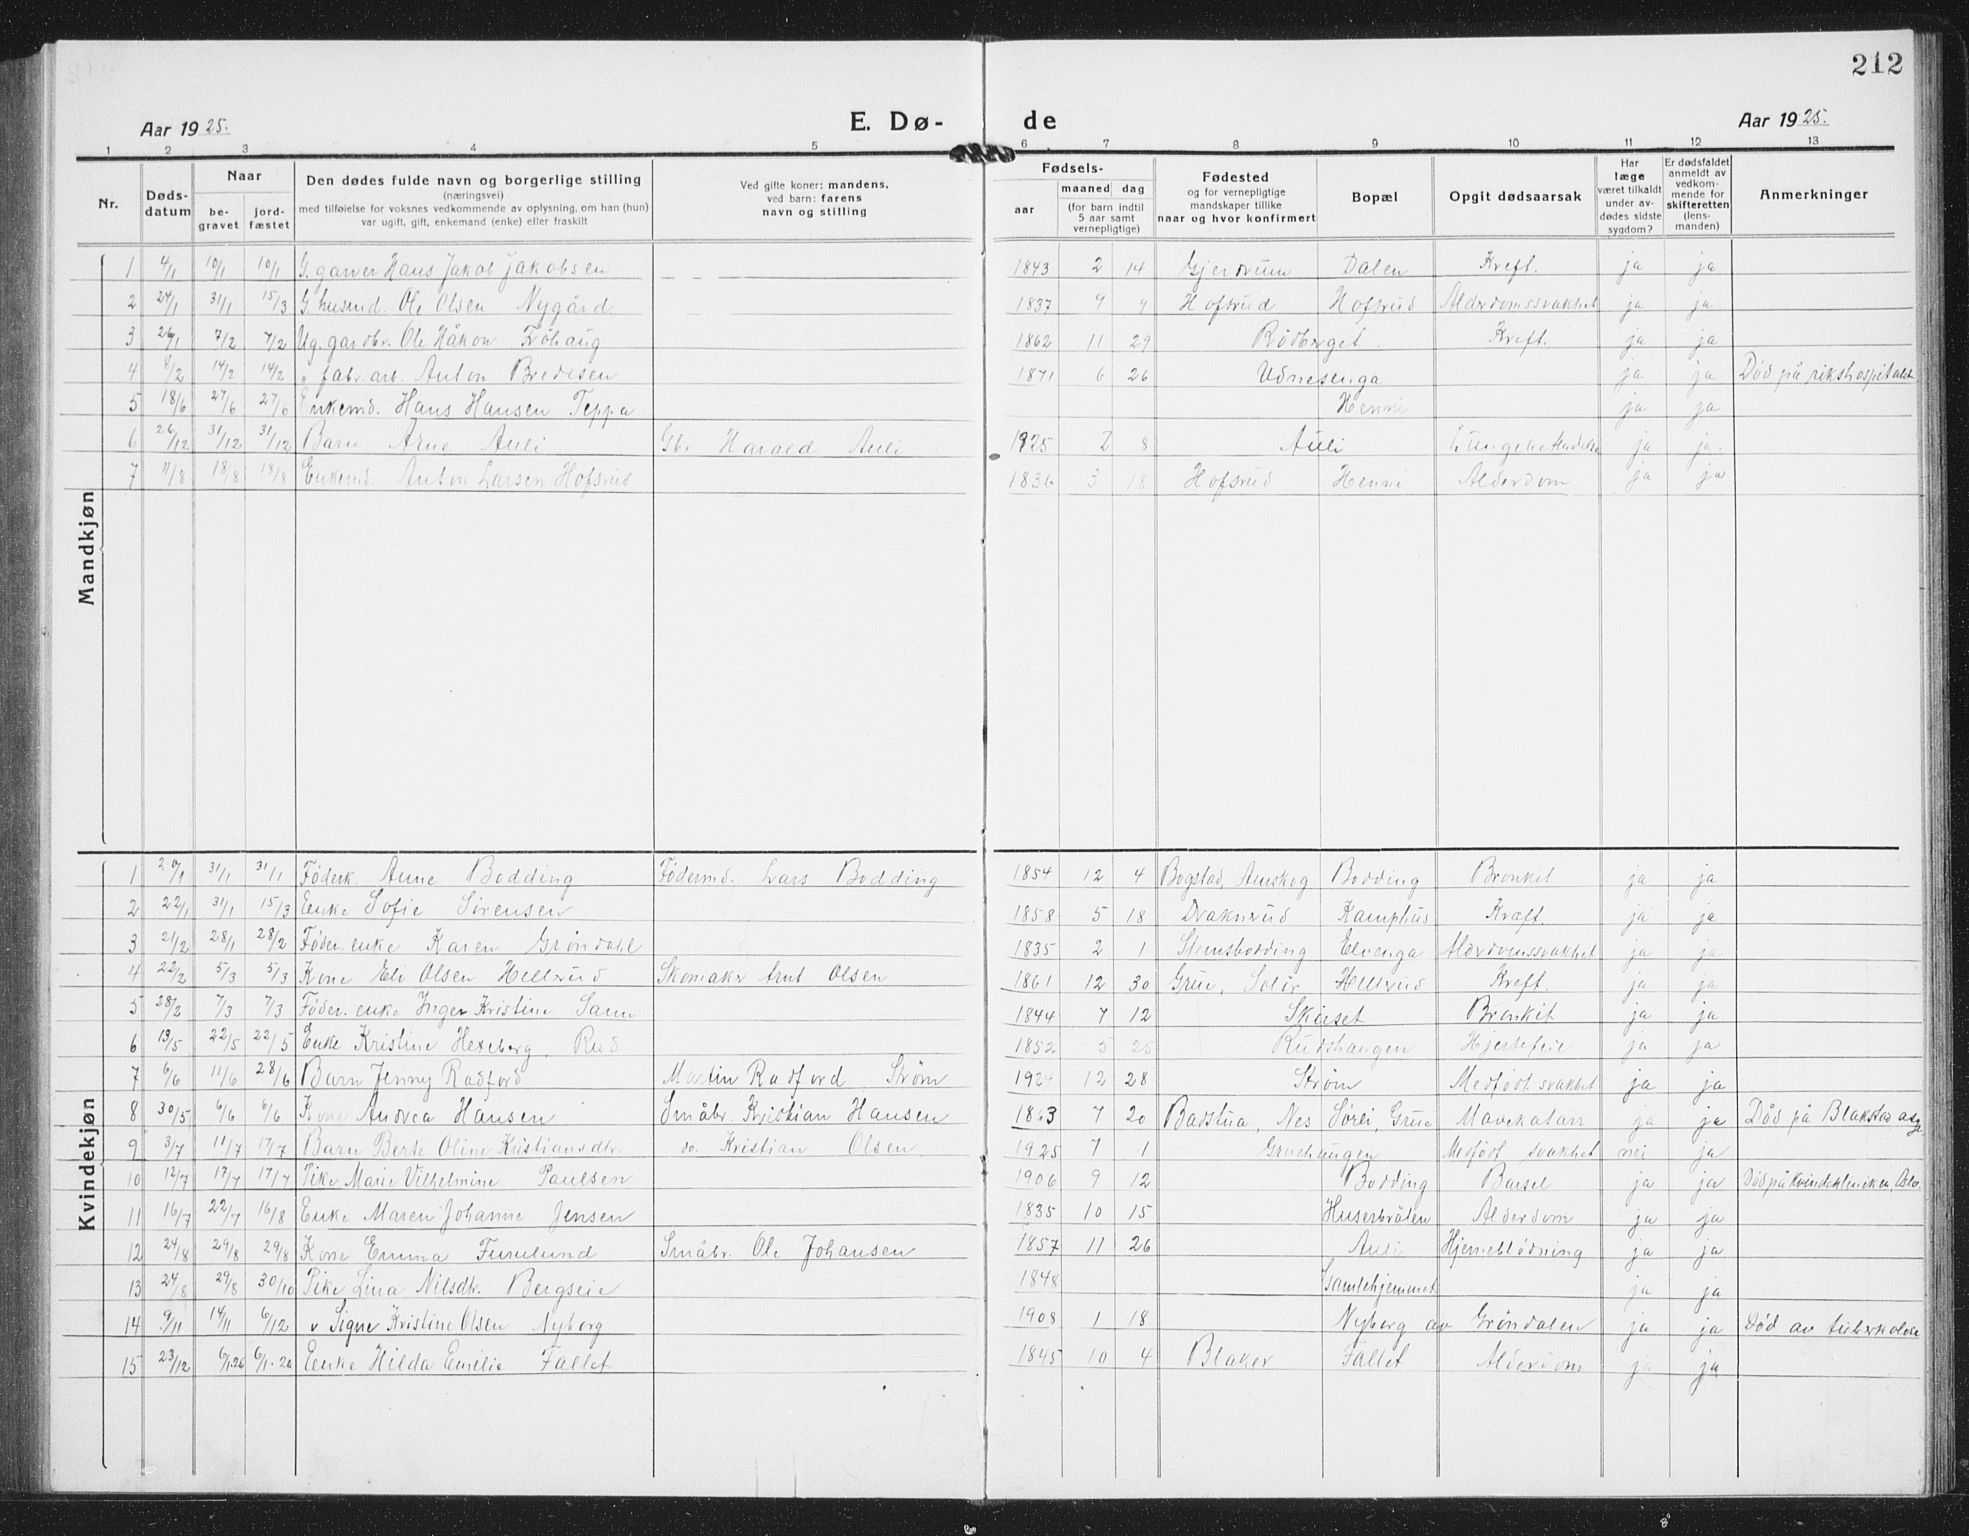 212
Aar 1925. E. Dø- de Aar 1925.
1 2 3 4 5 6 7 8 9 10 11 12 13
Nr. Døds-datum Naar be-gravet jord-fæstet Den dødes fulde navn og borgerlige stilling (næringsvei) med tilføielse for voksnes vedkommende av oplysning, om han (hun) var ugift, gift, enkemand (enke) eller fraskilt Ved gifte koner: mandens, ved barn: farens navn og stilling Fødsels- aar maaned dag (for barn indtil 5 aar samt vernepligtige) Fødested og for vernepligtige mandskaper tillike naar og hvor konfirmert Bopæl Opgit dødsaarsak Har læge været tilkaldt under av-dødes sidste sygdom? Er dødsfaldet anmeldt av vedkom-mende for skifteretten (lens-manden) Anmerkninger
Mandkjøn
1 4/1 10/1 10/1 G. garver Hans Jakob Jakobsen 1843 2 14 Gjerdrum Dalen Kreft. ja ja
2 24/1 31/1 15/3 G. husmd. Ole Olsen Nygård 1837 9 9 Hofsrud Hofsrud Alderdomssvakhet ja ja
3 26/1 7/2 7/2 Ug. gardbr. Ole Håkon Frøhaug 1862 11 29 Rødberget. Kreft. ja ja
4 8/2 14/2 14/2 " fabr. arb. Anton Bredesen 1871 6 26 Udnesenga ja ja Død på rikshospitalet
5 18/6 27/6 27/6 Enkemd. Hans Hansen Teppa Henni ja ja
6 26/12 31/12 31/12 Barn Arne Auli Gbr. Harald Auli 1925 2 8 Auli ja ja.
7 11/8 18/8 18/8 Enkemd. Anton Larsen Hofsrud 1836 3 18 Hofsrud Henni Alderdom ja ja
Kvindekjøn
1 20/1 31/1 31/1 Føderk. Anne Bodding Fødermd. Lars Bodding 1854 12 4 Bogstad, Aurskog Bodding Bronkit ja ja
2 22/1 31/1 15/3 Enke Sofie Sørensen 1858 5 18 Kamphus Kræft. ja ja
3 21/2 28/1 28/2 Føder.enke Karen Grøndahl 1835 2 1 Stensbodding Elvenga Alderdomssvakhet ja ja
4 22/2 5/3 5/3 Kone Eli Olsen Hellerud Skomaker Arnt Olsen 1861 12 30 Grue, Solør Hellerud Kreft. ja ja
5 28/2 7/3 7/3 Føder.enke Inger Kristine Sann 1844 7 12 Skøiset Bronkit ja ja
6 13/5 22/5 22/5 Enke Kristine Hexeberg, Rud 1852 5 25 Rudshaugen Hjertefeil ja ja
7 6/6 11/6 28/6 Barn Jenny Rodford Martin Radford, Strøm 1924 12 28 Strøm Medfødt svakhet ja ja
8 30/5 6/6 6/6 Kone Andrea Hansen Småbr. Kristian Hansen 1863 7 20 Badstua, Nes Sørli, Grue Mavekatarr ja ja Død på Blakstad asyl
9 3/7 11/7 17/7 Barn Berte Oline Kristiansdtr. do. Kristian Olsen 1925 7 1 Gruehaugen Medfødt svakhet nei ja
10 12/7 17/7 17/7 Pike Marie Vilhelmine Paulsen 1906 9 12 Bodding Barsel ja ja Død på Kvindeklinikken, Oslo.
11 16/7 22/7 16/8 Enke Maren Johanne Jensen 1835 10 15 Huserbråten Alderdom ja ja
12 24/8 29/8 29/8 Kone Emma Furulund Småbr. Ole Johansen 1857 11 26 Auli Hjerneblødning ja ja
13 24/8 29/8 30/10 Pike Lina Nilsdtr. Bergseie 1848 Gamlehjemmet ja ja
14 9/11 14/11 6/12 " Signe Kristine Olsen Nyborg 1908 1 18 Nyborg av Grøndalen ja ja Død av tuberkulose
15 23/12 6/1.26 6/1.26 Enke Hilda Emilie Fallet 1845 10 4 Blaker Fallet Alderdom ja ja